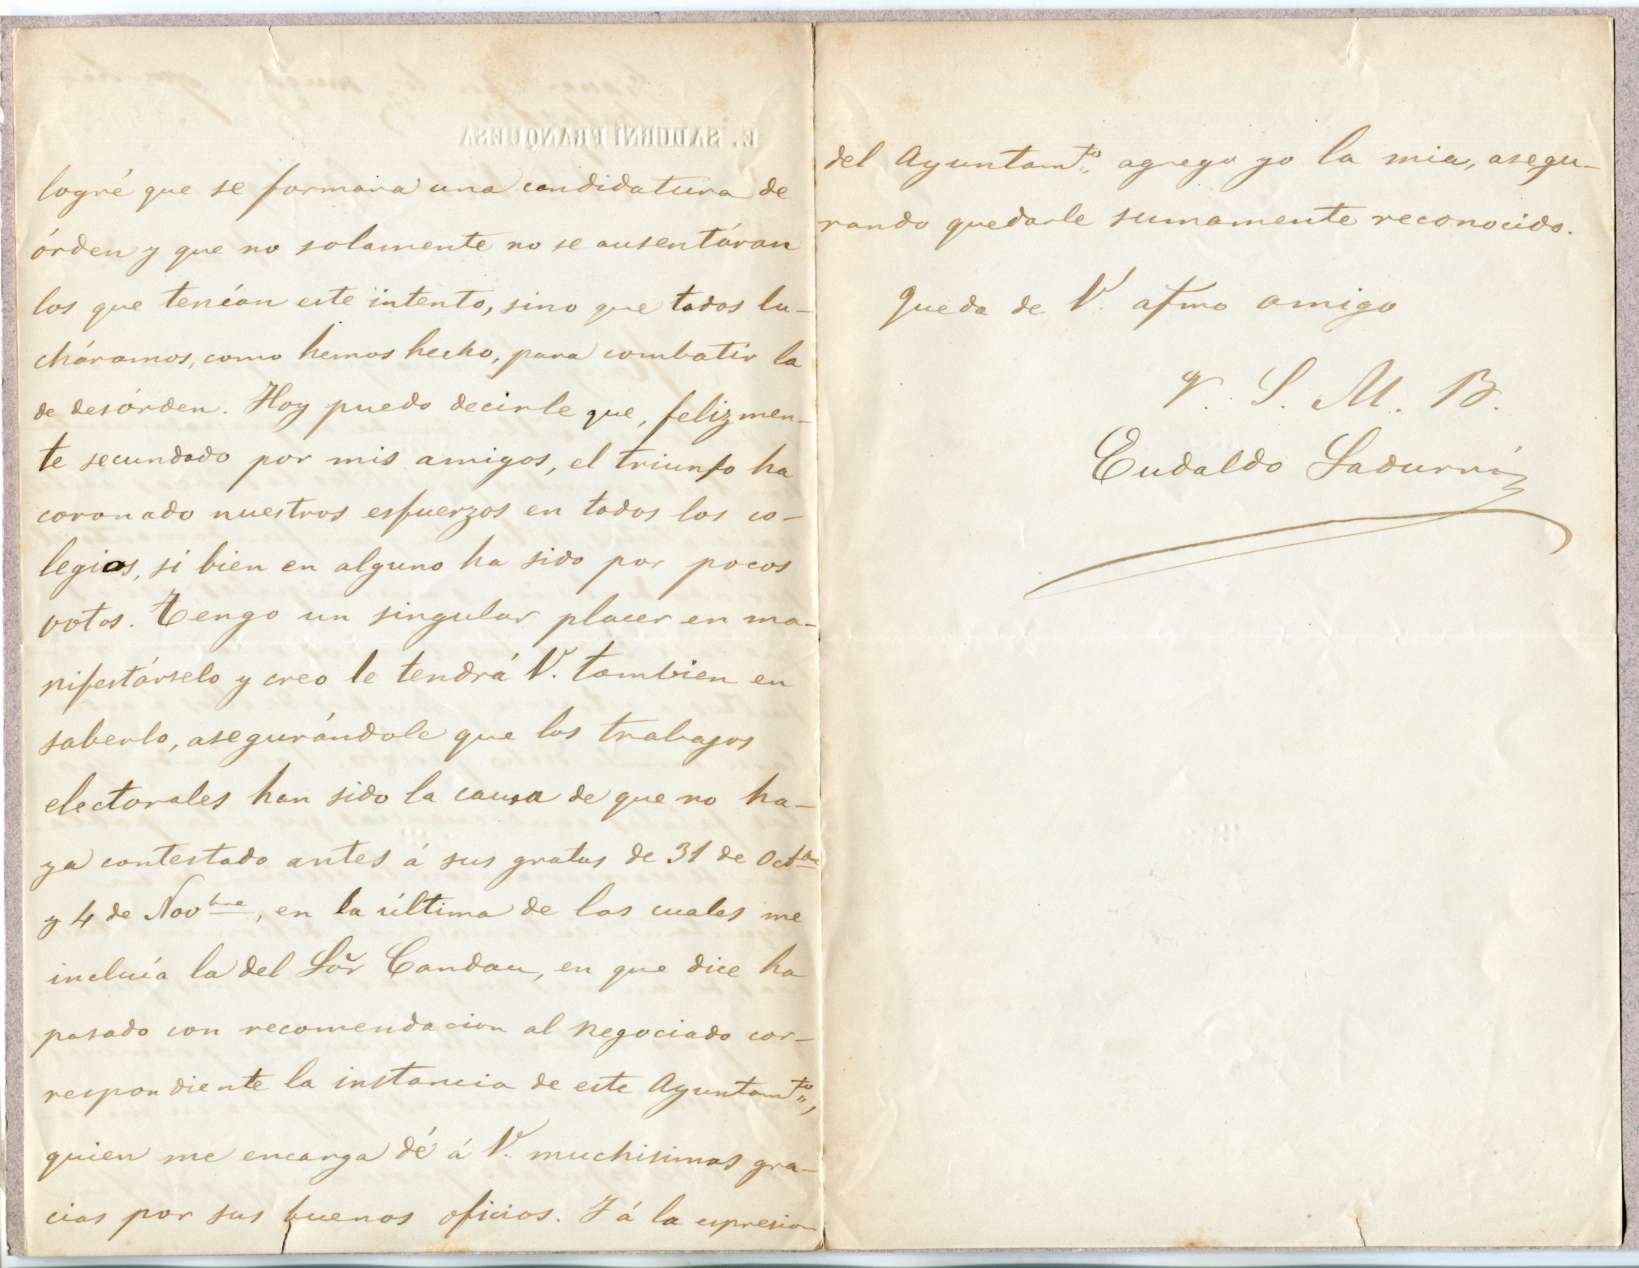 E. SADURNÍ FRANQUESA
logré que se formara una candidatura de
órden y que no solamente no se ausentáran
los que tenían este intento, sino que todos lu-
cháramos, como hemos hecho, para combatir la
de desórden. Hoy puedo decirle que, felizmen-
te secundado por mis amigos, el triunfo ha
coronado nuestros esfuerzos en todos los co-
legios, si bien en alguno ha sido por pocos
votos. Tengo un singular placer en ma-
nifestárselo y creo le tendrá V. tambien en
saberlo, asegurándole que los trabajos
electorales han sido la causa de que no ha-
ya contestado antes á sus gratas de 31 de Octbre
y 4 de Novbre, en la última de las cuales me
incluía la del Sor Candau, en que dice ha
pasado con recomendacion al negociado cor-
respondiente la instancia de este Ayuntamto,
quien me encarga dé á V. muchisimas gra-
cias por sus buenos oficios. Y á la espresion
del Ayuntamto agrego yo la mia, asegu-
rando quedarle sumamente reconocido.
Queda de V. afmo amigo
q. S. M. B.
Eudaldo Sadurní